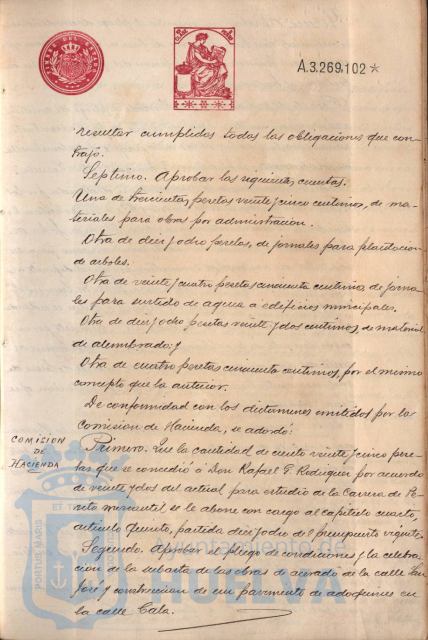 TIMBRE DEL ESTADO
A.3.269.102*
resultar cumplidas todas las obligaciones que con-
trajo.
Septimo. Aprobar las siguientes cuentas.
Una de trescientas pesetas veinte y cinco centimos, de ma-
teriales para obras por administracion.
Otra de diez y ocho pesetas, de jornales para plantacion
de arboles.
Otra de veinte y cuatro pesetas cincuenta centimos de jorna-
les para surtido de aguas a edificios municipales.
Otra de diez y ocho pesetas veinte y dos centimos, de material
de alumbrado; y
Otra de cuatro pesetas cincuenta centimos, por el mismo
concepto que la anterior.
De conformidad con los dictamenes emitidos por la
Comision de Hacienda, se acordó:
COMISION
DE
HACIENDA
Primero. Que la cantidad de ciento veinte y cinco pese-
tas que se concedió a Don Rafael F. Rodriguez por acuerdo
de veinte y dos del actual para estudio de la Carrera de Pe-
rito mercantil, se le abone con cargo al capitulo cuarto,
articulo quinto, partida diez y ocho del presupuesto vigente.
Segundo. Aprobar el pliego de condiciones y la celebra-
cion de la subasta de las obras de acerado de la calle San
José y construccion de un pavimento de adoquines en
la calle Cala.
PORTUS MARIS ET
Ayuntamiento de
HUELVA